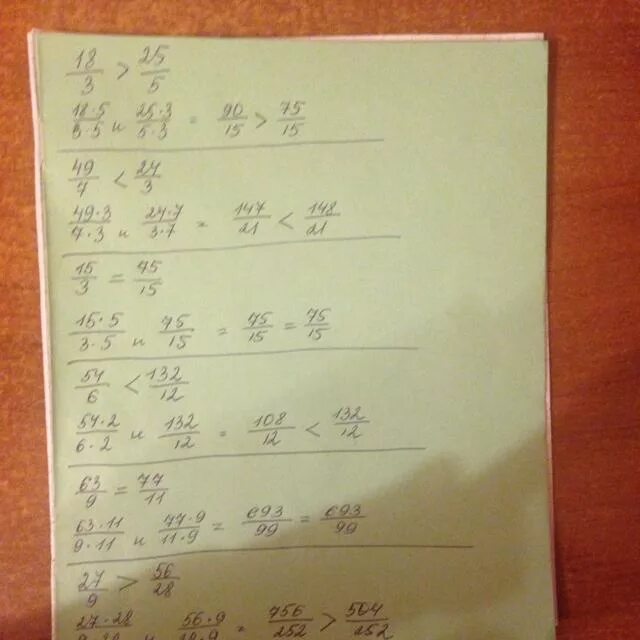 18/3 > 25/5
18·5/3·5 и 25·3/5·3 = 90/15 > 75/15
49/7 < 24/3
49·3/7·3 и 24·7/3·7 = 147/21 < 148/21
15/3 = 75/15
15·5/3·5 и 75/15 = 75/15 = 75/15
54/6 < 132/12
54·2/6·2 и 132/12 = 108/12 < 132/12
63/9 = 77/11
63·11/9·11 и 77·9/11·9 = 693/99 = 693/99
27/9 > 56/28
27·28/9·28 и 56·9/28·9 = 756/252 > 504/252